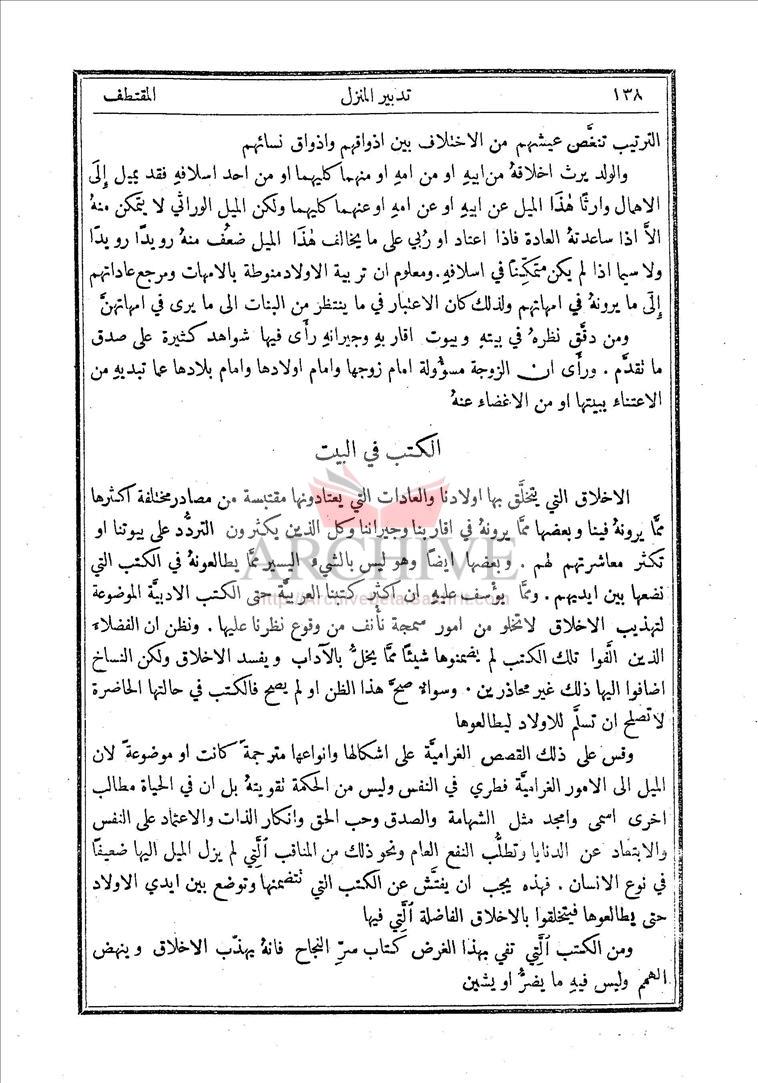 ١٣٨ تدبير المنزل المقتطف
الترتيب تنغَّص عيشهم من الاختلاف بين اذواقهم واذواق نسائهم
والولد يرث اخلاقهُ من ابيهِ او من امهِ او منهما كليهما او من احد اسلافهِ فقد يميل إِلَى
الاهمال وارثًا هٰذَا الميل عن ابيهِ او عن امهِ او عنهما كليهما ولكن الميل الوراثي لا يتمكن منهُ
الاَّ اذا ساعدتهُ العادة فاذا اعتاد او رُبي على ما يخالف هٰذَا الميل ضعُف منهُ رويدًا رويدًا
ولا سيما اذا لم يكن متمكِّنًا في اسلافهِ. ومعلوم ان تربية الاولاد منوطة بالامهات ومرجع عاداتهم
إِلَى ما يرونهُ في امهاتهم ولذلك كان الاعتبار في ما ينتظر من البنات الى ما يرى في امهاتهنَّ
ومن دقَّق نظرهُ في بيتهِ وبيوت اقاربهِ وجيرانهِ رأَى فيها شواهد كثيرة على صدق
ما تقدَّم . ورأَى ان الزوجة مسؤُولة امام زوجها وامام اولادها وامام بلادها عما تبديهِ من
الاعتناء ببيتها او من الاغضاء عنهُ
الكتب في البيت
الاخلاق التي يتخلَّق بها اولادنا والعادات التي يعتادونها مقتبسة من مصادر مختلفة اكثرها
ممَّا يرونهُ فينا وبعضها ممَّا يرونهُ في اقاربنا وجيراننا وكل الذين يكثرون التردُّد على بيوتنا او
تكثر معاشرتهم لهم . وبعضها ايضًا وهو ليس بالشيء اليسير ممَّا يطالعونهُ في الكتب التي
نضعها بين ايديهم . وممَّا يؤْسف عليهِ ان اكثر كتبنا العربيَّة حتى الكتب الادبيَّة الموضوعة
لتهذيب الاخلاق لا تخلو من امور سمجة نأنف من وقوع نظرنا عليها . ونظن ان الفضلاء
الذين الَّفوا تلك الكتب لم يضمنوها شيئًا ممَّا يخلُّ بالآداب ويفسد الاخلاق ولكن النساخ
اضافوا اليها ذلك غير محاذرين . وسواءٌ صحَّ هذا الظن او لم يصح فالكتب في حالتها الحاضرة
لا تصلح ان تسلَّم للاولاد ليطالعوها
وقس على ذلك القصص الغراميَّة على اشكالها وانواعها مترجمةً كانت او موضوعةً لان
الميل الى الامور الغراميَّة فطري في النفس وليس من الحكمة تقويتهُ بل ان في الحياة مطالب
اخرى اسمى وامجد مثل الشهامة والصدق وحب الحق وانكار الذات والاعتماد على النفس
والابتعاد عن الدنايا وتطلُّب النفع العام ونحو ذلك من المناقب اَلَّتي لم يزل الميل اليها ضعيفًا
في نوع الانسان . فهذه يجب ان يفتَّش عن الكتب التي تتضمنها وتوضع بين ايدي الاولاد
حتى يطالعوها فيتخلقوا بالاخلاق الفاضلة اَلَّتي فيها
ومن الكتب اَلَّتي تفي بهذا الغرض كتاب سرّ النجاح فانهُ يهذّب الاخلاق وينهض
الهمم وليس فيهِ ما يضرُّ او يشين
ARCHIVE